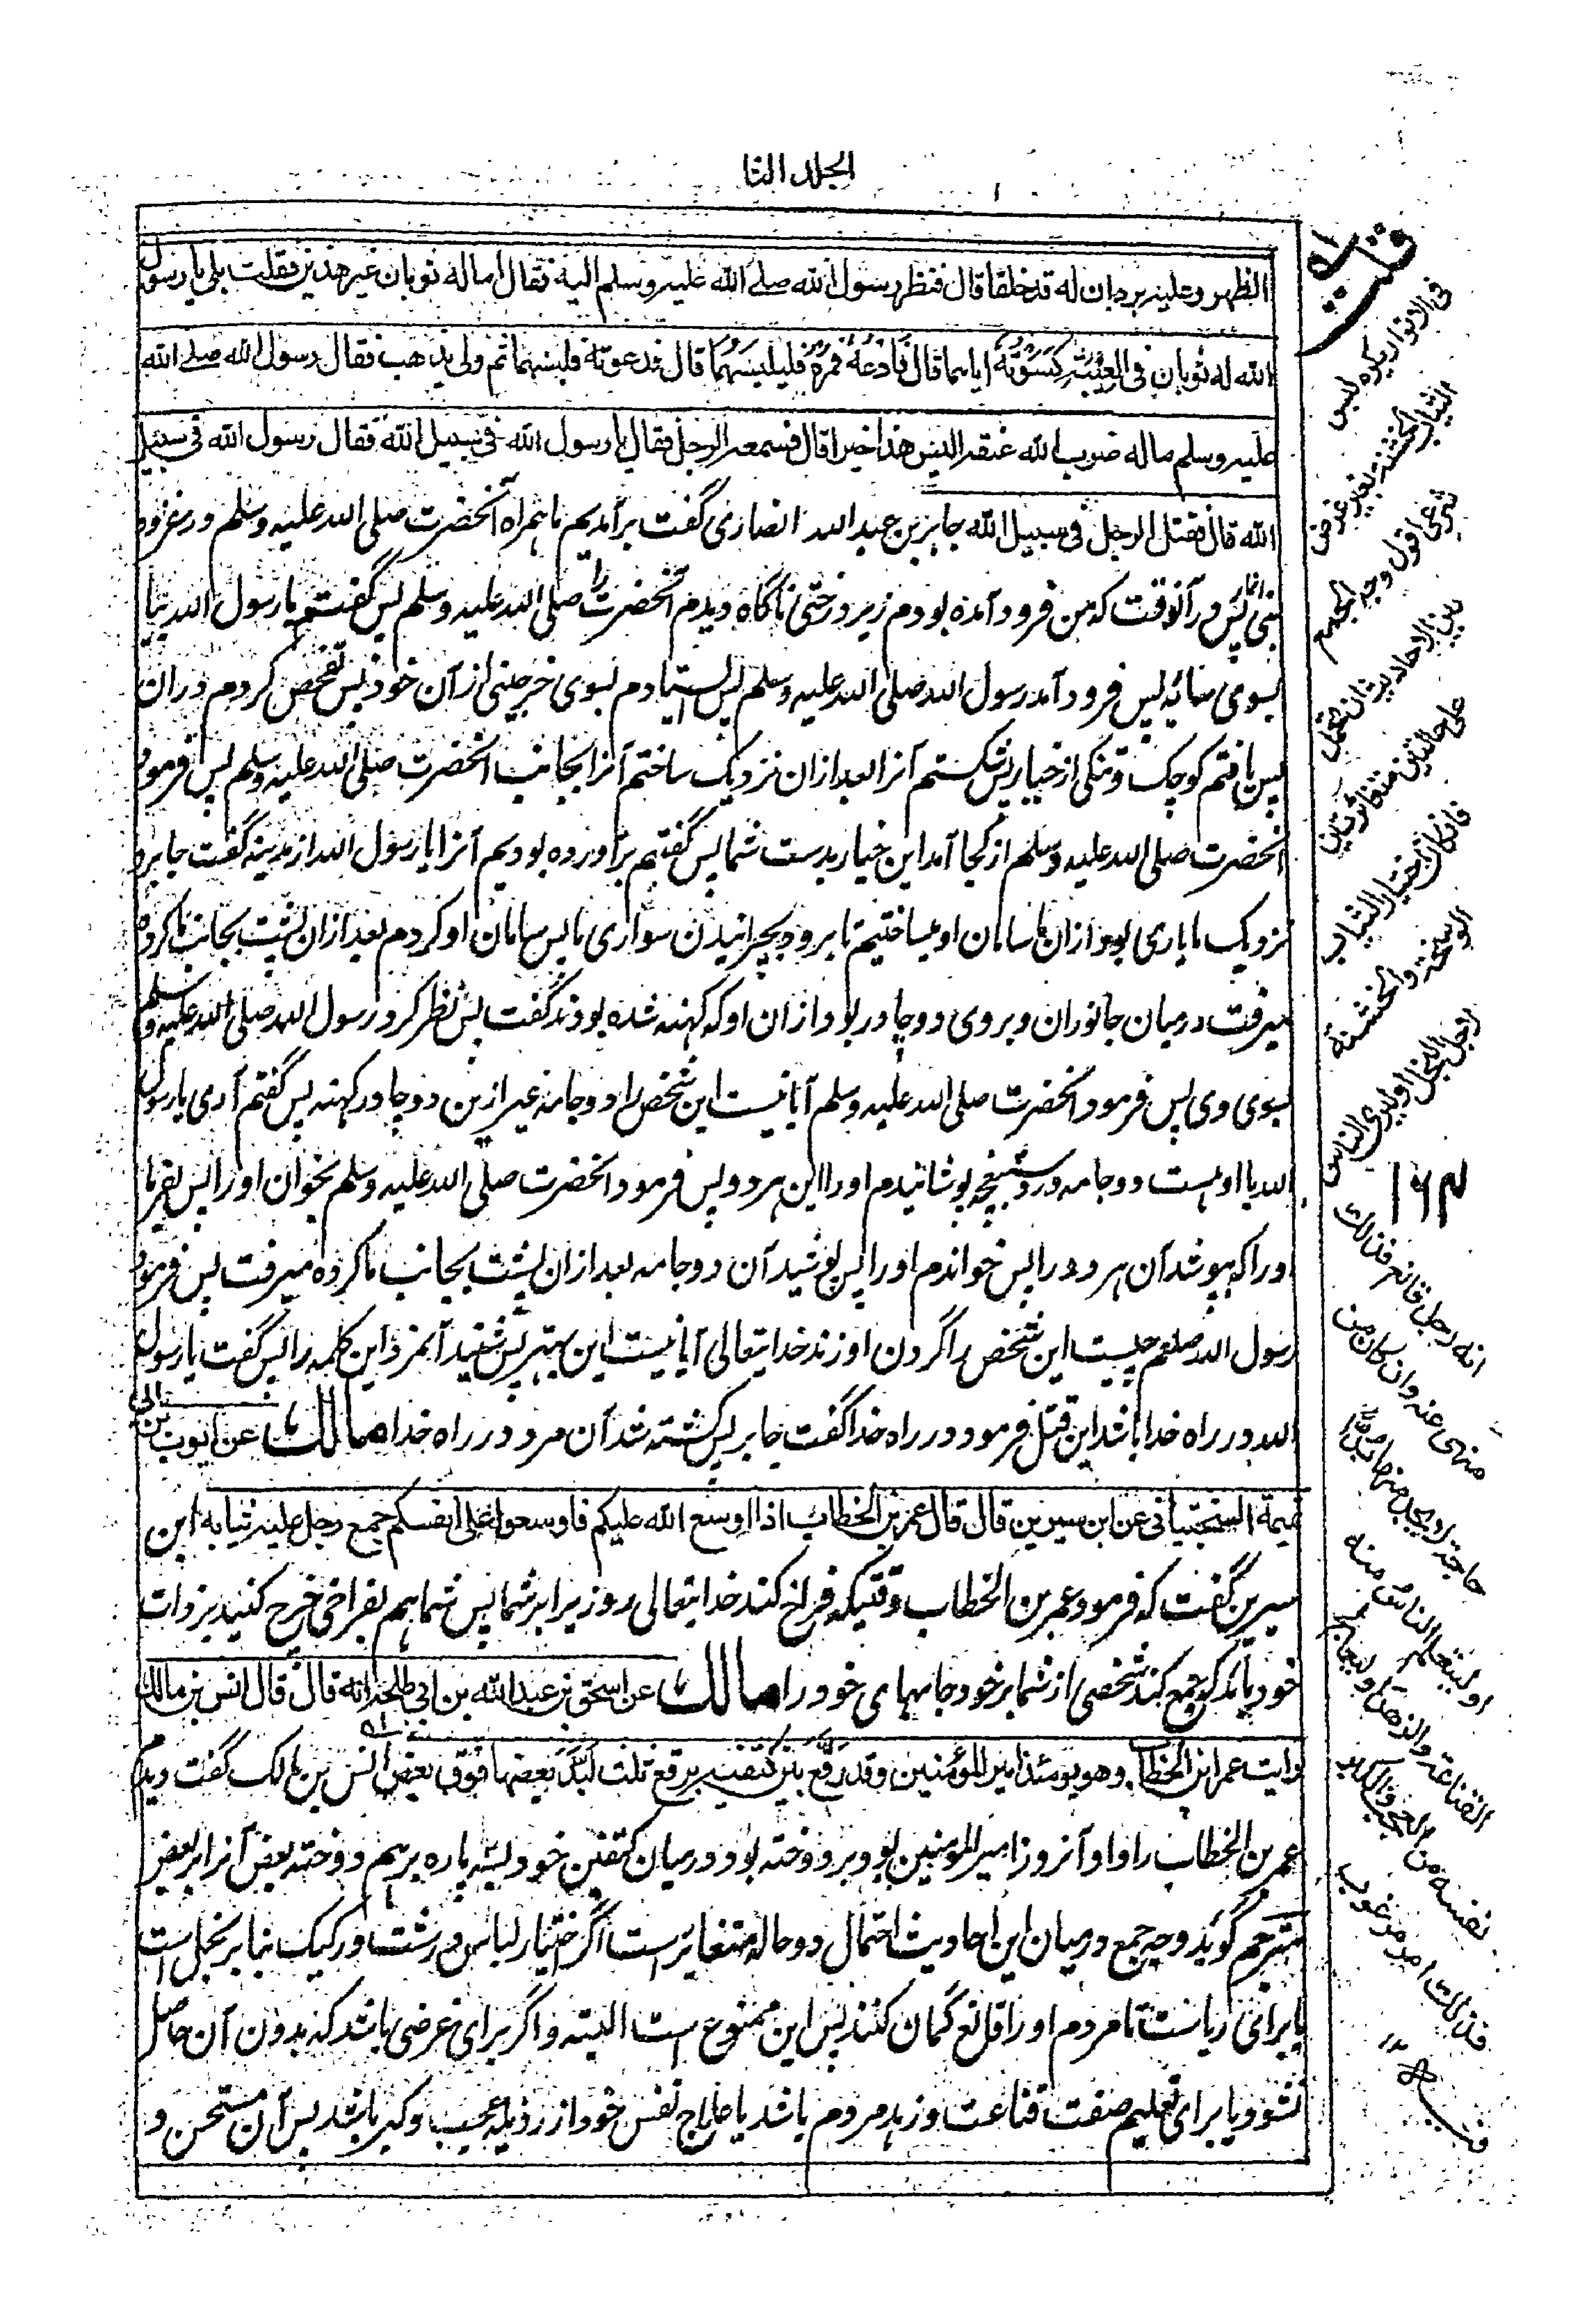 الجلد الثا
الظهر وعليه بردان له قد خلقا قال فنظر رسول الله صلے الله عليه وسلم اليه فقال اما له ثوبان غير هذين فقلت بلى يا رسول
الله له ثوبان فى العيبة كسوته اياهما قال فادعه فمره فليلبسهما قال فدعوته فلبسهما ثم ولى يذهب فقال رسول الله صلے الله
عليه وسلم ماله ضرب الله عنقه اليس هذا خيرا قال فسمعه الرجل فقال يا رسول الله فى سبيل الله فقال رسول الله فى سبيل
الله قال فقتل الرجل فى سبيل الله جابر بن عبد الله انصاری گفت برآمدیم ما همراه آنحضرت صلى الله عليه وسلم در غزوه
بنی انمار پس در آنوقت که من فرود آمده بودم زیر درختی ناگاه دیدم آنحضرت را صلى الله عليه وسلم پس گفتم یا رسول الله بیا
بسوی سایه پس فرود آمد رسول الله صلى الله عليه وسلم پس استادم بسوی خرجینی از آن خود پس تفحص کردم دران
پس یافتم کوچک وتنکی از خیار پس شکستم آنرا بعد ازان نزدیک ساختم آنرا بجانب آنحضرت صلى الله عليه وسلم پس فرمود
آنحضرت صلى الله عليه وسلم از کجا آمد این خیار بدست شما پس گفتیم برآورده بودیم آنرا یا رسول الله از مدینه گفت جابر و
نزدیک ما یاری بود ازان ما سامان او میساختیم تا برود بچرانیدن سواری ما پس سامان او کردم بعد ازان پشت بجانب ما کرده
میرفت درمیان جانوران وبروی دو چادر بود ازان او که کهنه شده بودند گفت پس نظر کرد رسول الله صلى الله عليه وسلم
بسوی وی پس فرمود آنحضرت صلى الله عليه وسلم آیا نیست این شخص را دو جامه غیر ازین دو چادر کهنه پس گفتم آری یا رسول
الله یا او هست دو جامه در بقچه پوشانیدم او را این هر دو پس فرمود آنحضرت صلى الله عليه وسلم بخوان او را پس بفرما
او را که بپوشد آن هر دو را پس خواندم او را پس پوشید آن دو جامه بعد ازان پشت بجانب ما کرده میرفت پس فرمود
رسول الله صلعم چیست این شخص را گردن او زند خدایتعالی آیا نیست این بهتر پس شنید آنمرد این کلمه را پس گفت یا رسول
الله در راه خدا باشد این قتل فرمود در راه خدا گفت جابر پس کشته شد آن مرد در راه خدا مالك عن ايوب بن ابى
تميمة السختيانى عن ابن سيرين قال قال عمر بن الخطاب اذا اوسع الله عليكم فاوسعوا على انفسكم جمع رجل عليه ثيابه ابن
سیرین گفت که فرمود عمر بن الخطاب وقتیکه فراخ کند خدایتعالی روزی را بر شما پس شما هم بفراخی خرج کنید بر ذات
خود باید که جمع کند شخصی از شما بر خود جامهای خود را مالك عن اسحق بن عبد الله بن ابى طلحة انه قال قال انس بن مالك
رايت عمر ابن الخطاب وهو يومئذ امير المؤمنين وقد رقع بين كتفيه برقع ثلث لبد بعضها فوق بعض انس بن مالک گفت دیدم
عمر بن الخطاب را واو آنروز امیر المومنین بود وبر دوخته بود درمیان کتفین خود سه پاره برهم دوخته بعض آنرا بر بعض
مترجم گوید وجه جمع درمیان این احادیث احتمال دو حاله متغایرست اگر اختیار لباس درشت ورکیک بنا بر بخل است
یا برائی ریاست تا مردم او را قانع گمان کنند پس این ممنوع است البته واگر برای غرضی باشد که بدون آن حاصل
نشود یا برای تعلیم صفت قناعت وزهد مردم باشد یا علاج نفس خود از رذیله عجب وکبر باشد پس آن مستحسن و
قلت
فى الانوار يكره لبس
الثياب الخشنة بغير غرض
شرعى اقول وجه الجمع
بين الاحاديث ان تحمل
على حالتين متغايرتين
فان كان اختيار الثياب
الوسخة والخشنة
لاجل البخل او ليرى الناس
۱۶۴
انه رجل قانع فذلك
منهى عنه وان كان من
او ليتعلم الناس منه
القناعة والزهد او ليعالج
نفسه من العجب والكبر
فذلك امر مرغوب
فيه